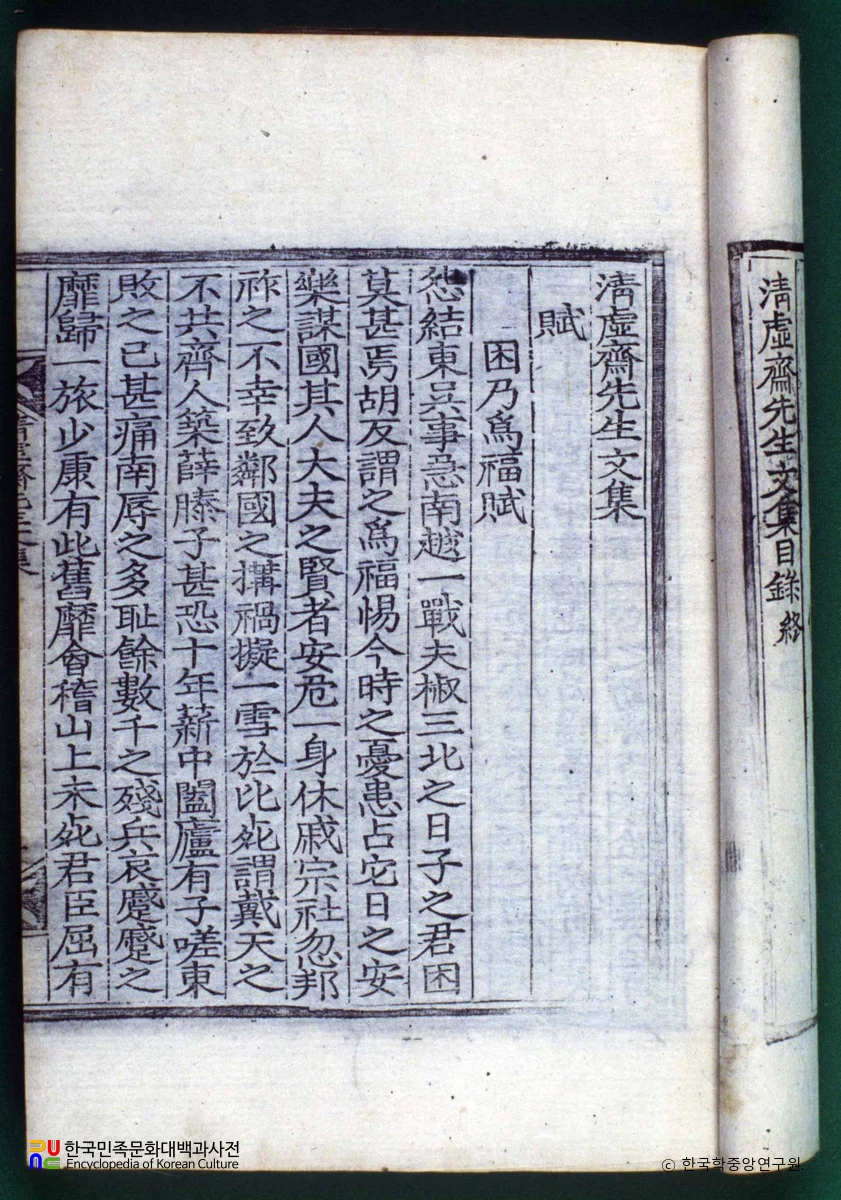 淸虛齋先生文集目錄 終
淸虛齋先生文集
賦
困乃爲福賦
怨結東吳事急南越一戰夫椒三北之日子之君困
莫甚焉胡反謂之爲福惕今時之憂患占它日之安
樂謀國其人大夫之賢者安危一身休戚宗社忽邦
祚之不幸致鄰國之搆禍擬一雪於比死謂戴天之
不共齊人築薛滕子甚恐十年薪中闔廬有子嗟東
敗之已甚痛南辱之多恥餘數千之殘兵哀蹙蹙之
靡歸一旅少康有此舊靡會稽山上未死君臣屈有
한국민족문화대백과사전
Encyclopedia of Korean Culture
© 한국학중앙연구원